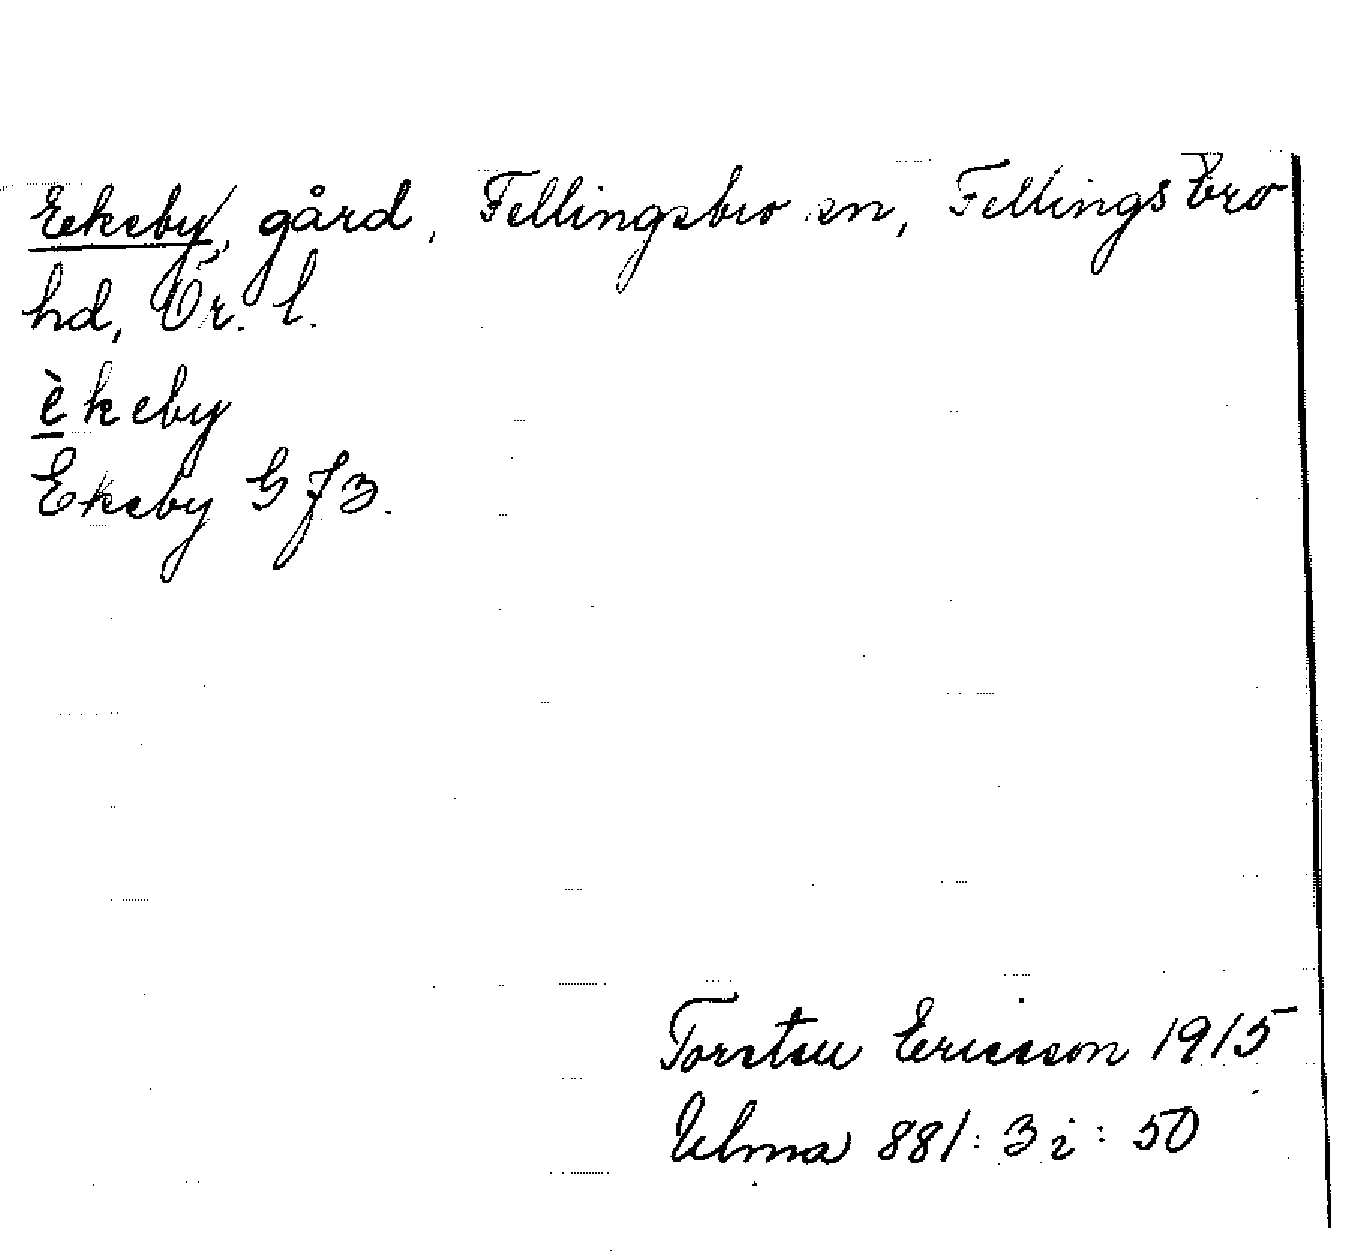 Ekeby, gård, Fellingsbro sn, Fellingsbro
hd, Ör. l.
èkeby
Ekeby GJB.
Torsten Ericsson 1915
Ulma 881:3i:50